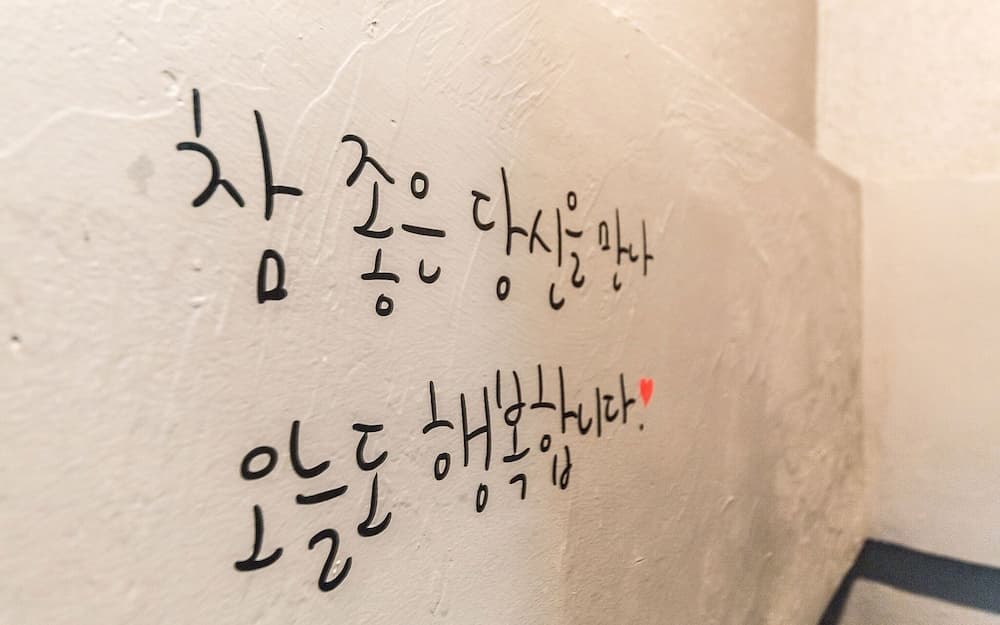 참 좋은 당신을 만나
오늘도 행복합니다.♥